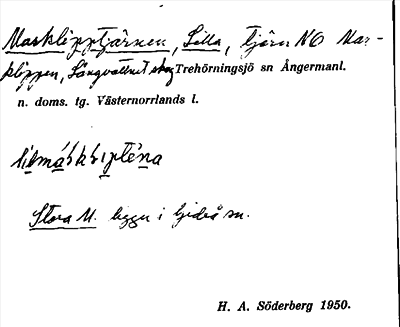 Masklipptjärnen, Lilla, tjärn NO Mar-
klippen, Långvattnet skog Trehörningsjö sn Ångermanl.
n. doms. tg. Västernorrlands l.
Stora M. ligger i Gideå sn.
H. A. Söderberg 1950.